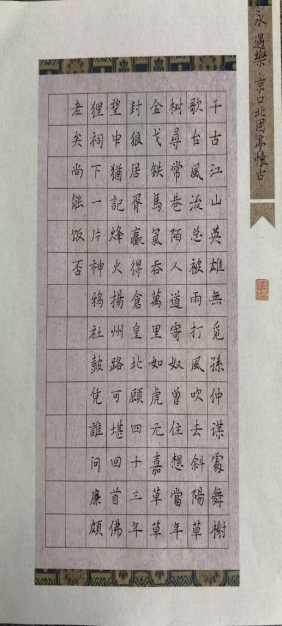 永遇樂·京口北固亭懷古
千古江山英雄無覓孫仲謀處舞榭
歌台風流总被雨打風吹去斜陽草
树尋常巷陌人道寄奴曾住想當年
金戈铁馬氣吞萬里如虎元嘉草草
封狼居胥贏得倉皇北顧四十三年
望中猶記烽火揚州路可堪回首佛
狸祠下一片神鸦社鼓凭誰問廉頗
老矣尚能饭否